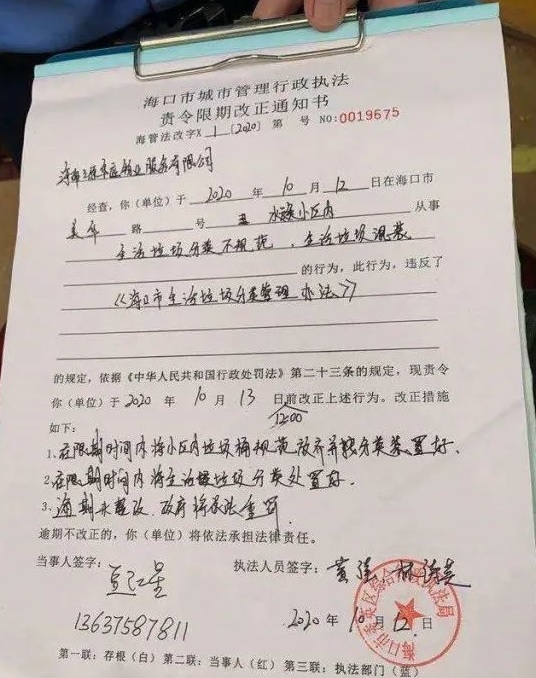 海口市城市管理行政执法
责令限期改正通知书
海管法改字X 1 [2020] 第 号 NO:0019675
物业服务有限公司
经查,你(单位)于 2020 年 10 月 12 日在海口市
美华 路 号 小区内 从事
生活垃圾分类不规范,生活垃圾混装
的行为,此行为,违反了
《海口市生活垃圾分类管理办法》
的规定,依据《中华人民共和国行政处罚法》第二十三条的规定,现责令
你(单位)于 2020 年 10 月 13 日前改正上述行为。改正措施
12:00
如下:
1、在限期时间内将小区内垃圾桶规范放齐并按分类装置好.
2、在限期时间内将生活垃圾分类处置好.
3、逾期未整改,政府将依法重罚.
逾期不改正的,你(单位)将依法承担法律责任。
当事人签字: 执法人员签字:
13637587811 2020 年 10 月 12 日
第一联:存根(白)第二联:当事人(红)第三联:执法部门(蓝)